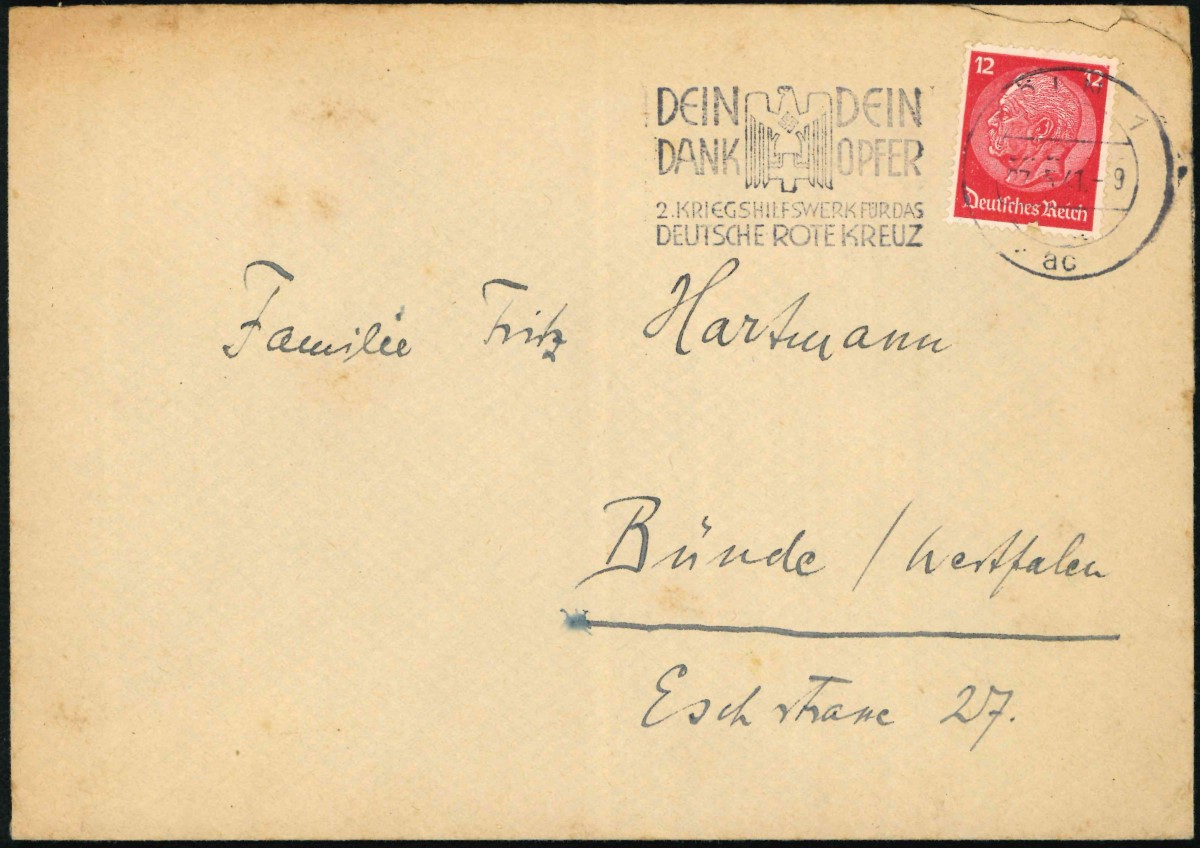 12 12
DEIN DEIN
DANK OPFER
2. KRIEGSHILFSWERK FÜR DAS
DEUTSCHE ROTE KREUZ
Deutsches Reich
41.-9
ac
Familie Fritz Hartmann
Bünde / Westfalen
Eschstrasse 27.